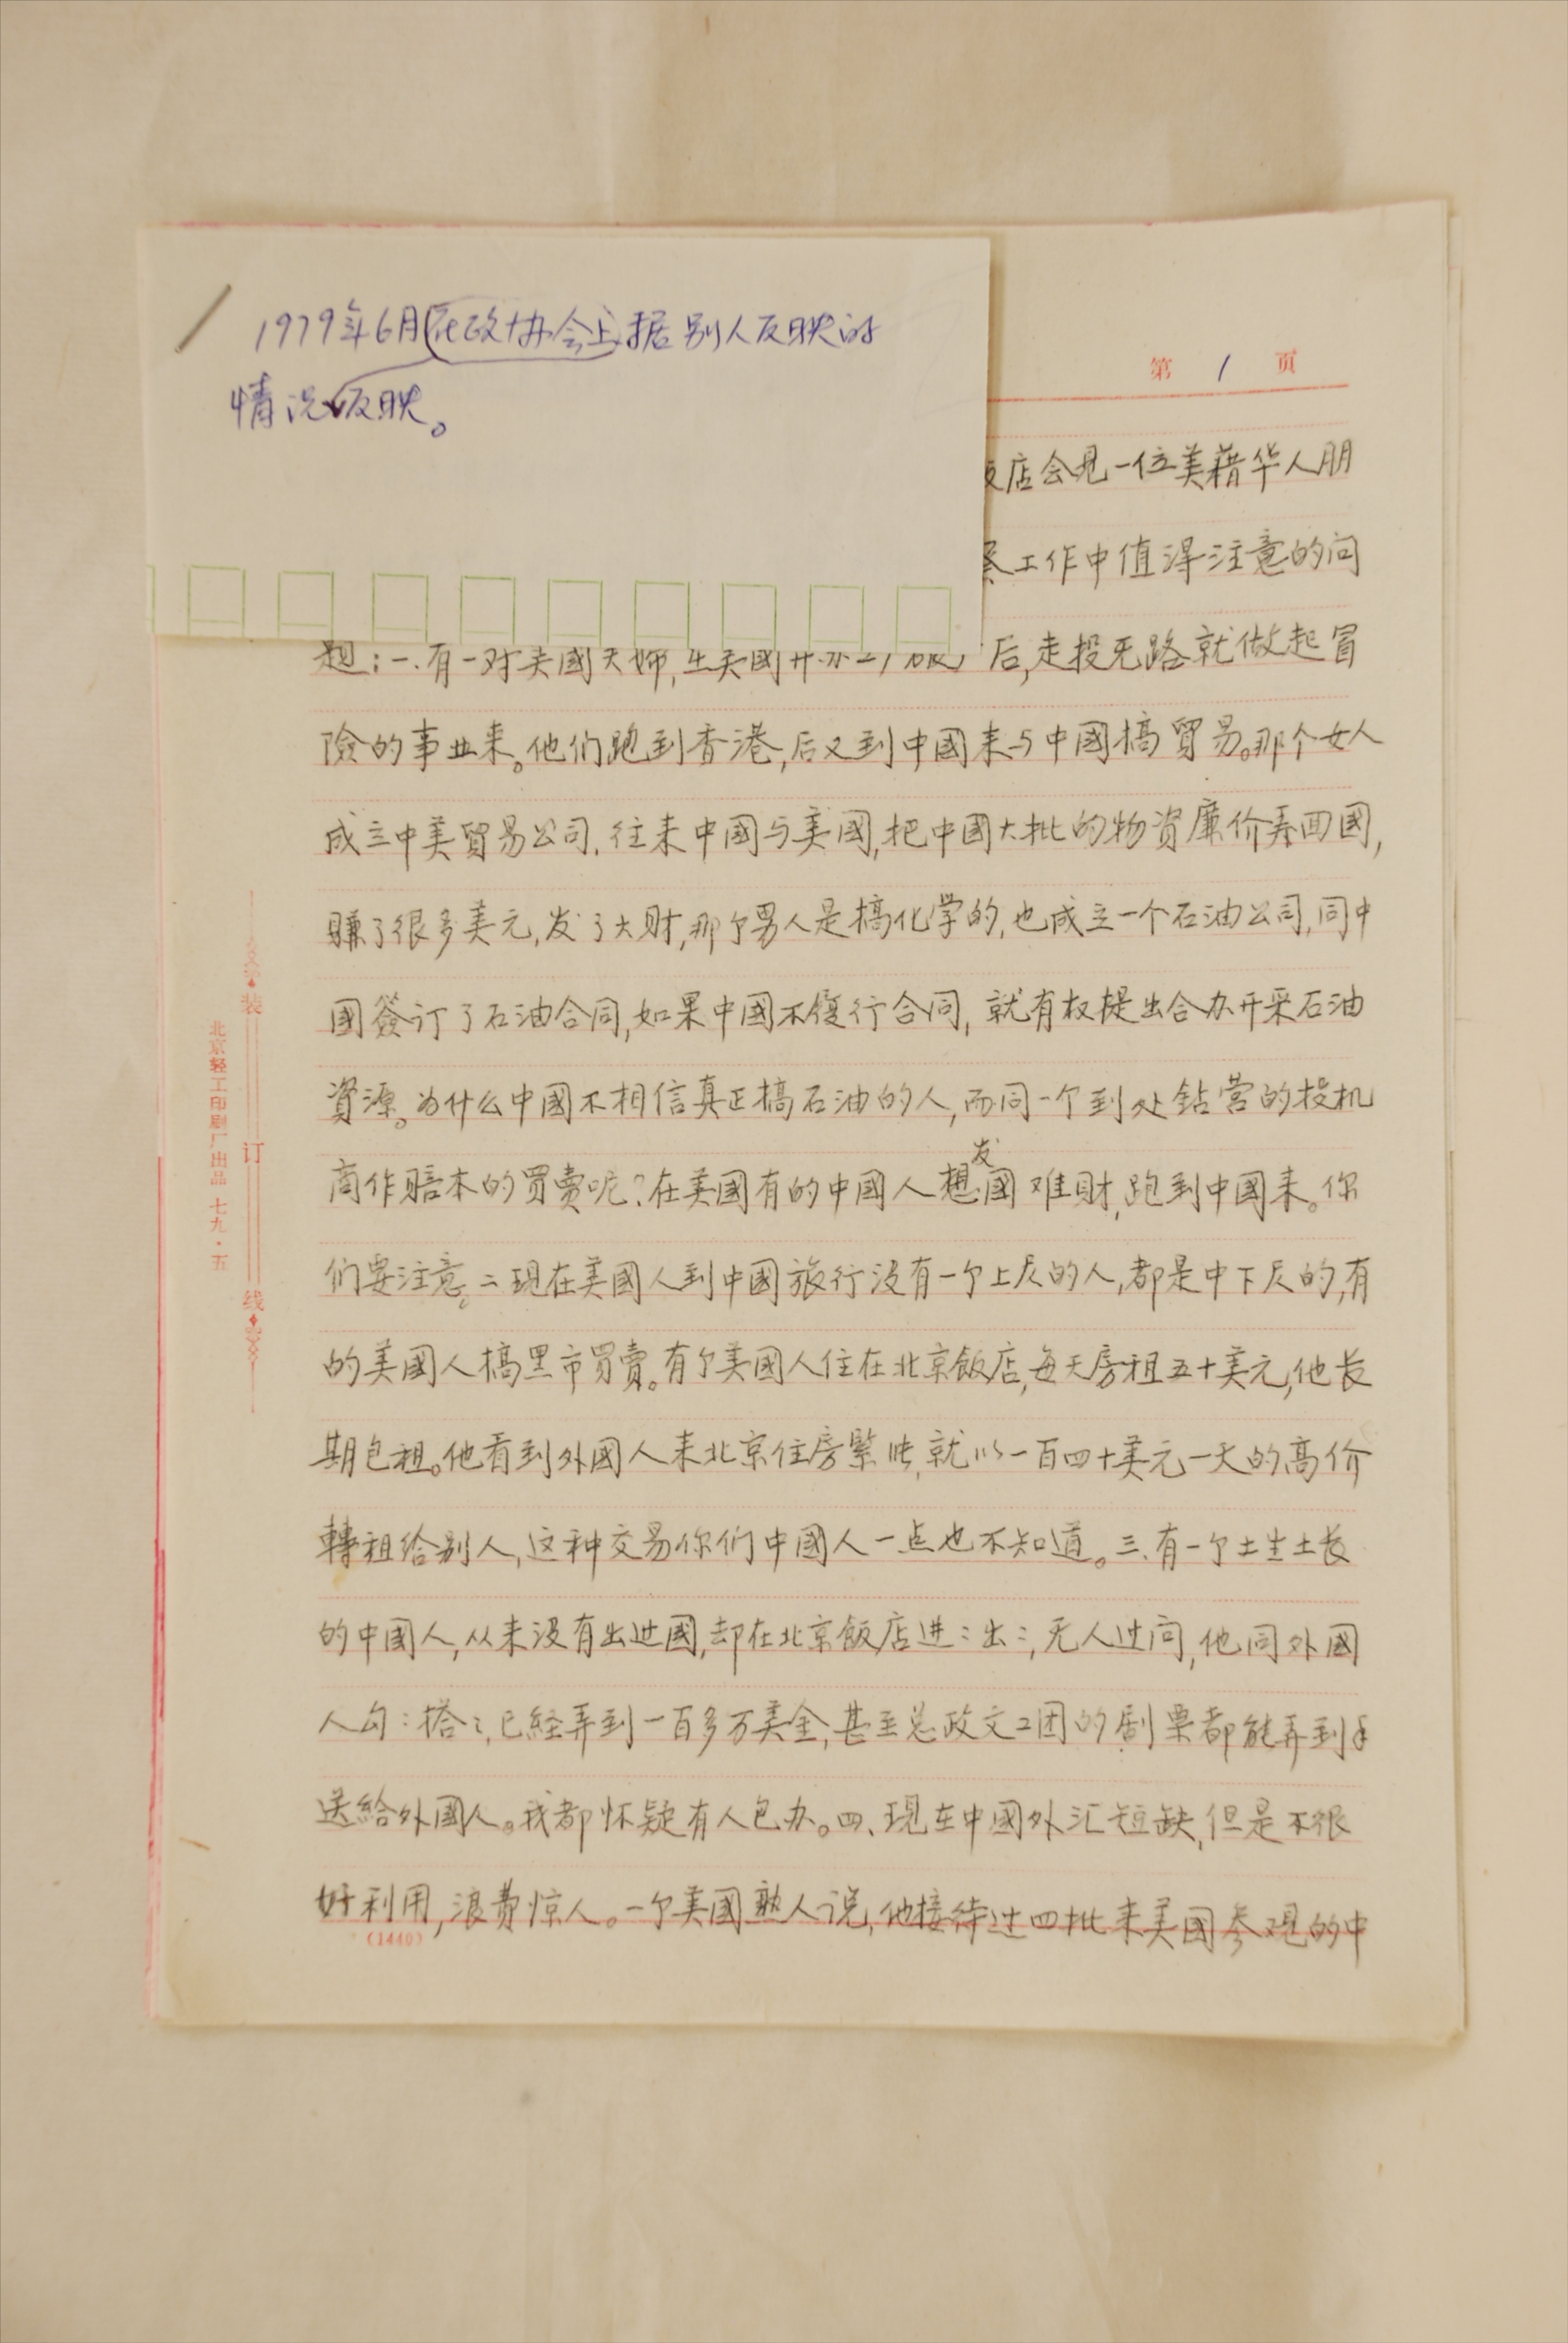 1979年6月在政协会上据别人反映的
情况反映。
第 1 页
店会见一位美藉华人朋
工作中值淂注意的问
题：一.有一对美國夫婦,在美國开办工厂 后,走投无路就做起冒
險的事业来。他们跑到香港,后又到中國来与中國搞貿易。那个女人
成立中美貿易公司.往来中國与美國,把中國大批的物资廉价弄回國,
賺了很多美元,发了大财,那个男人是搞化学的,也成立一个石油公司,同中
國簽订了石油合同,如果中國不履行合同,就有权提出合办开采石油
資源。为什么中國不相信真正搞石油的人,而同一个到处鈷营的投机
商作賠本的買賣呢?在美國有的中國人想发國难財,跑到中國来。你
们要注意。二现在美國人到中國旅行没有一个上层的人,都是中下层的,有
的美國人搞黑市買賣。有个美國人住在北京飯店,每天房租五十美元,他长
期包租。他看到外國人来北京住房緊张,就以一百四十美元一天的高价
轉租给别人,这种交易你们中國人一点也不知道。三.有一个土生土长
的中國人,从来没有出过國,却在北京飯店进〻出〻,无人过问,他同外國
人勾〻搭〻,已経弄到一百多万美金,甚至总政文工团的剧票都能弄到手
送給外國人。我都怀疑有人包办。四、现在中國外汇短缺,但是不很
好利用,浪费惊人。一个美國熟人说,他接待过四批来美國参观的中
(1440)
装
订
线
北京轻工印刷厂出品 七九·五